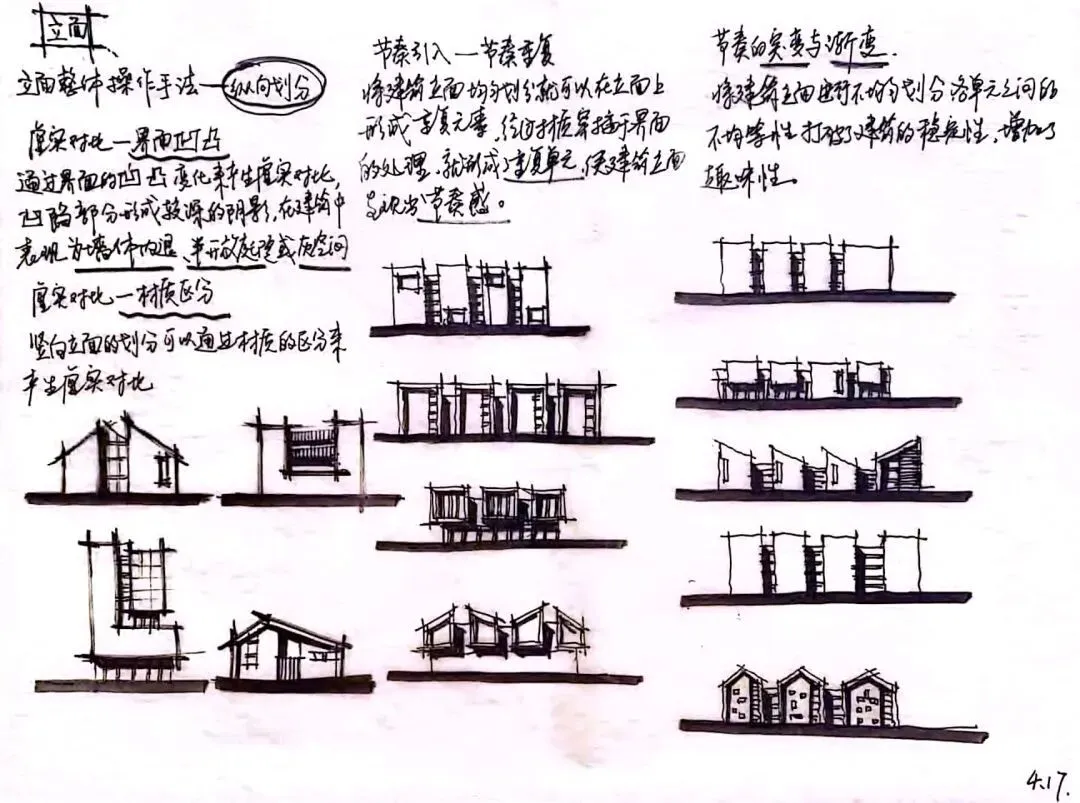 立面
立面整体操作手法—纵向划分
虚实对比—界面凹凸
通过界面的凹凸变化来产生虚实对比,
凹陷部分形成较深的阴影,在建筑中
表现为墙体内退、半开放庭院或灰空间
虚实对比—材质区分
竖向立面的划分可以通过材质的区分来
产生虚实对比
节奏引入—节奏重复
将建筑立面均匀划分就可以在立面上
形成重复元素,经过材质穿插于界面
的处理,就形成了重复单元,使建筑立面
表现出节奏感。
节奏的突变与渐变.
将建筑立面进行不均匀划分各单元之间的
不均等性打破了建筑的稳定性,增加了
趣味性。
4.17.